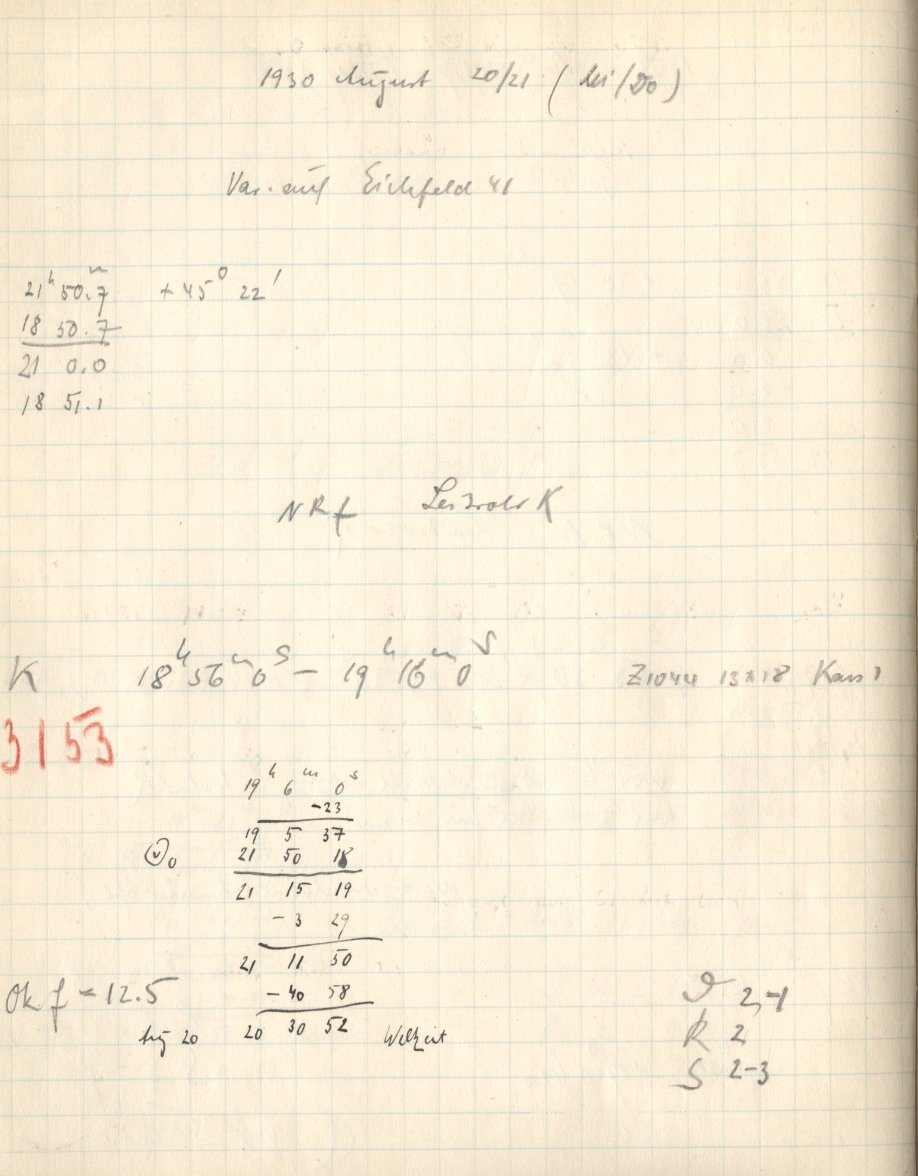 1930 August 20/21 (Mi/Do)
Var. auf Eichfeld 41
21ʰ 50.7ᵐ +45° 22'
18 50.7
21 0.0
18 51.1
NRf K
K 18ʰ 56ᵐ 0ˢ – 19ʰ 16ᵐ 0ˢ Z1044 13x18 Kass
3153
19ʰ 6ᵐ 0ˢ
-23
19 5 37
21 50 18
21 15 19
-3 29
21 11 50
-40 58
Ok f = 12.5
Aug 20 20 30 52 Weltzeit
2,-1
R 2
S 2-3